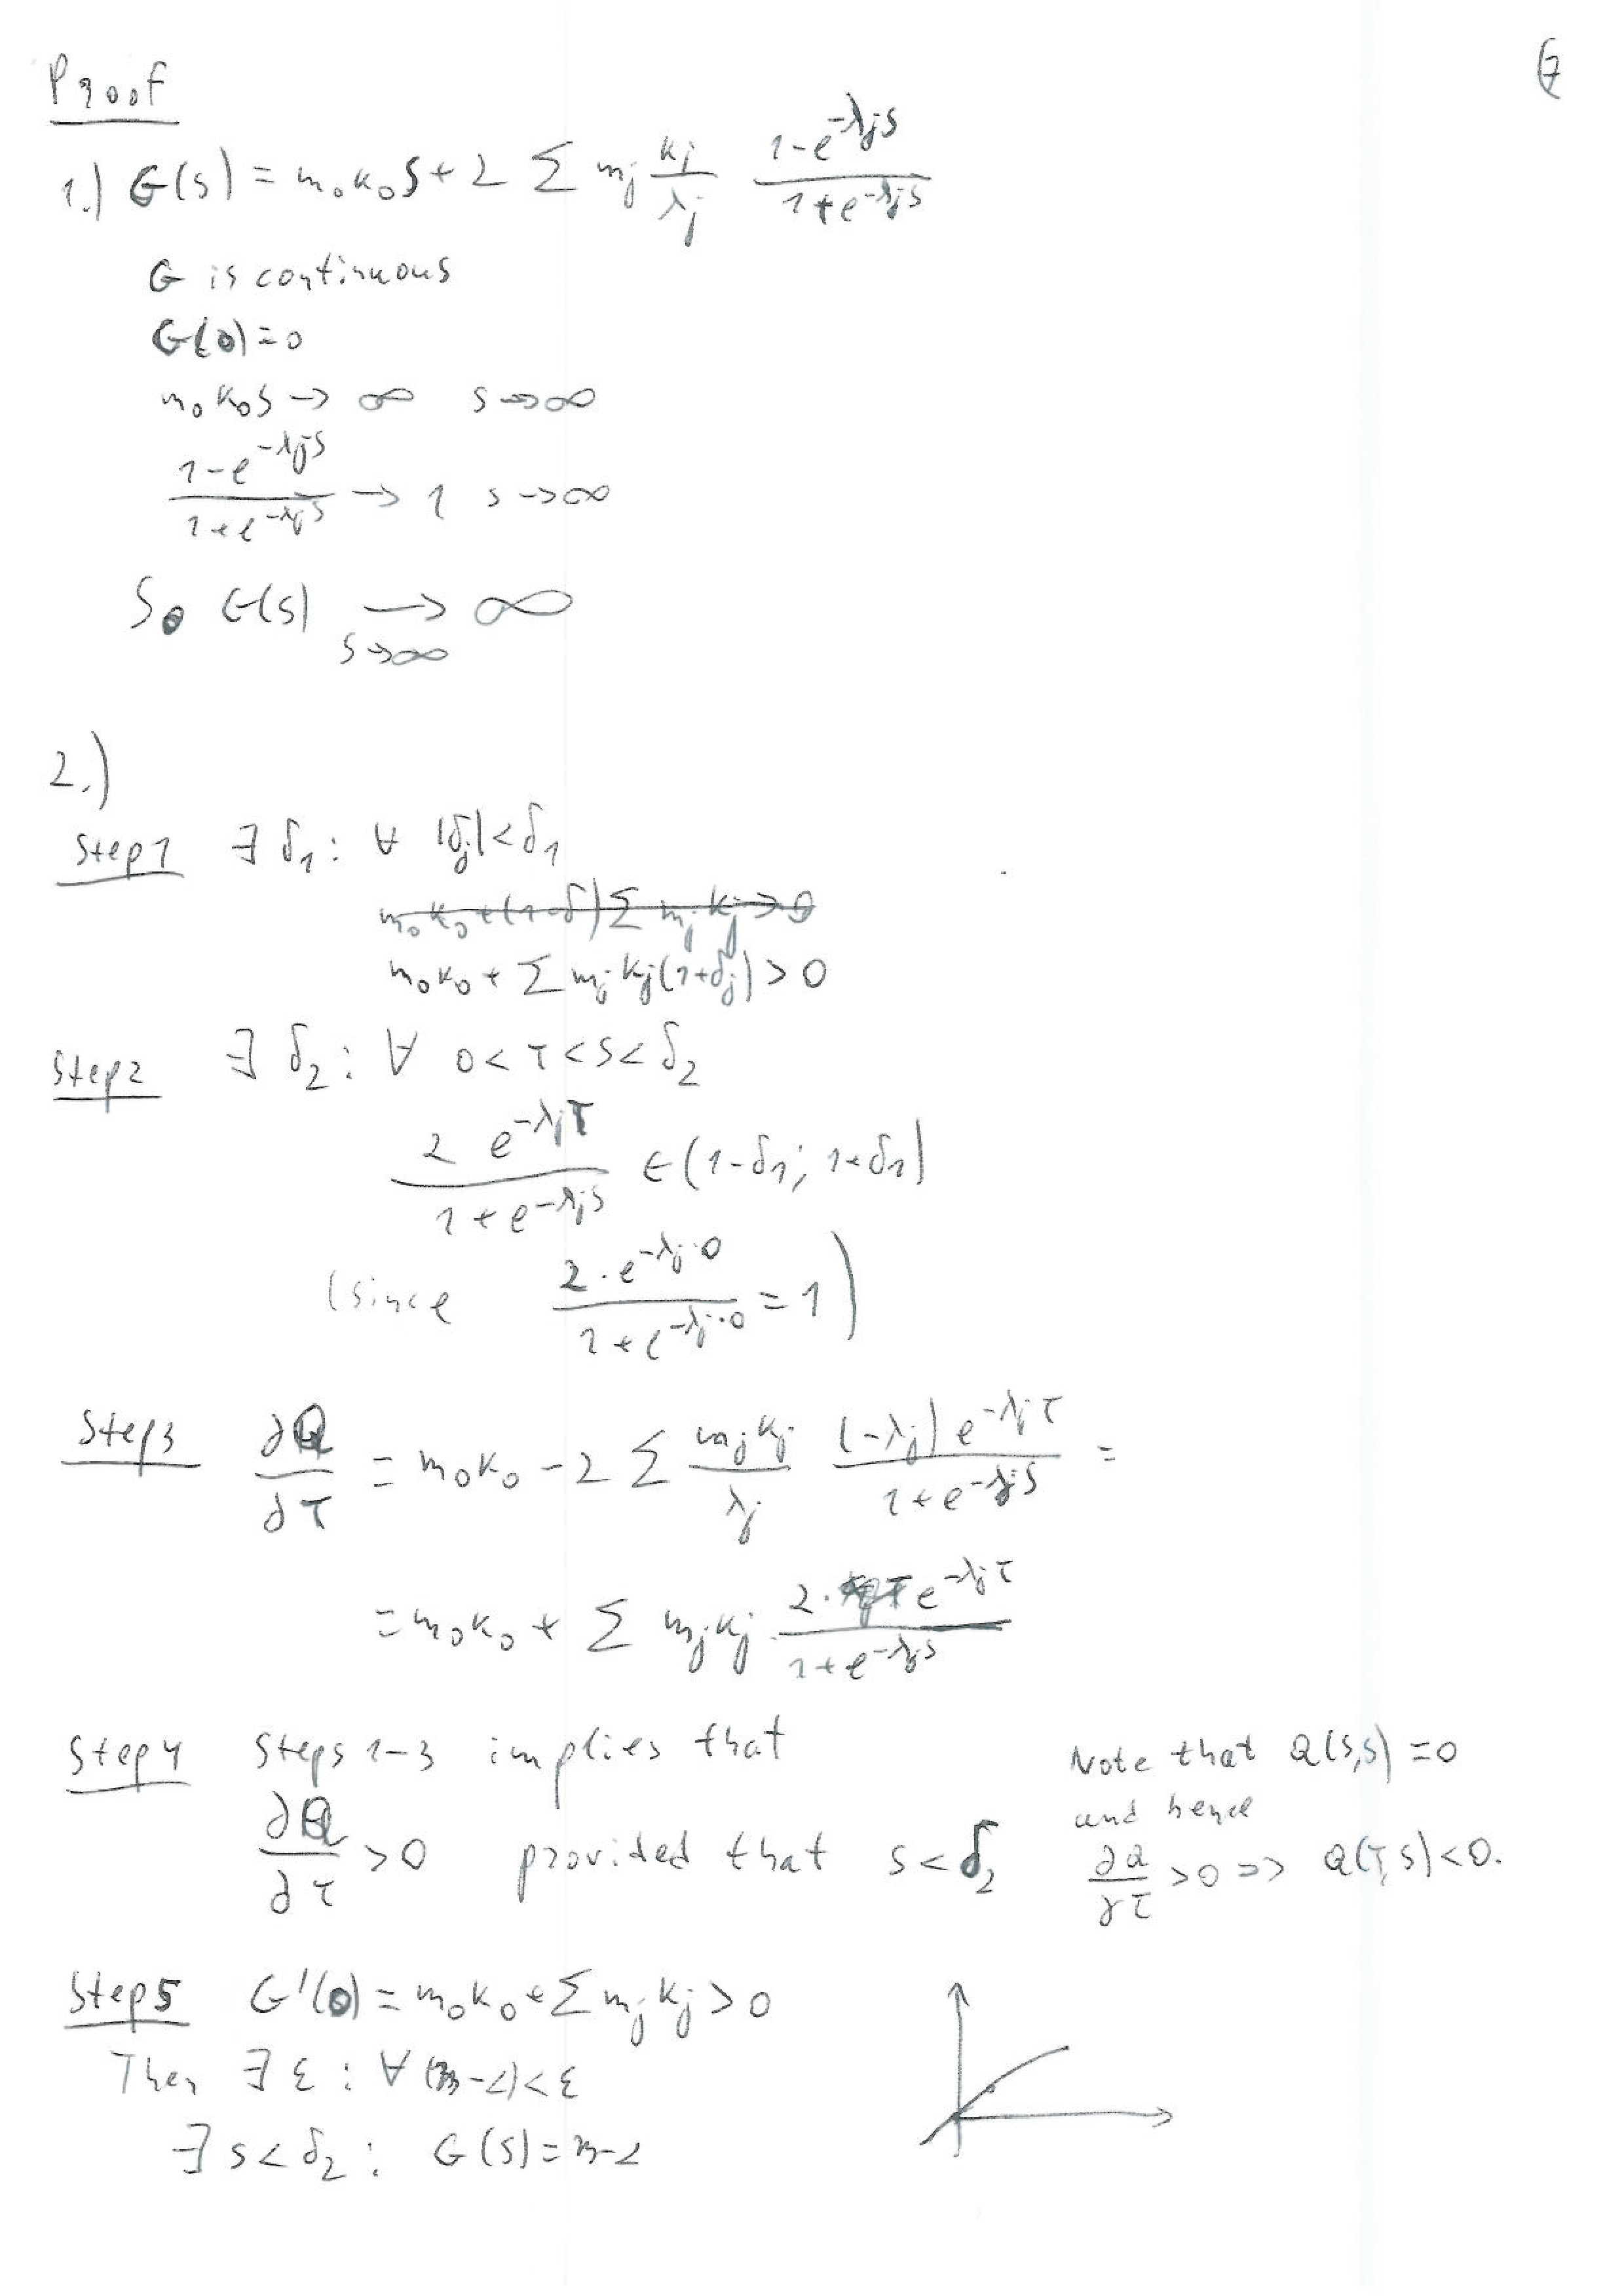 7
Proof
1.) G(s) = m₀k₀s + 2 Σ mⱼ kⱼ/λⱼ (1-e^{-λⱼs})/(1+e^{-λⱼs})
G is continuous
G(0)=0
m₀k₀s → ∞ s→∞
(1-e^{-λⱼs})/(1+e^{-λⱼs}) → 1 s→∞
So G(s) → ∞
s→∞
2.)
Step 1 ∃ δ₁: ∀ |δⱼ|<δ₁
m₀k₀+(1-δ)Σ mⱼkⱼ>0
m₀k₀ + Σ mⱼkⱼ(1+δⱼ) > 0
Step 2 ∃ δ₂: ∀ 0<τ<s<δ₂
2 e^{-λⱼτ}/(1+e^{-λⱼs}) ∈ (1-δ₁; 1+δ₁)
(since 2·e^{-λⱼ·0}/(1+e^{-λⱼ·0}) = 1)
Step 3 ∂Q/∂τ = m₀k₀ - 2 Σ mⱼkⱼ/λⱼ (-λⱼ)e^{-λⱼτ}/(1+e^{-λⱼs}) =
= m₀k₀ + Σ mⱼkⱼ · 2·e^{-λⱼτ}/(1+e^{-λⱼs})
Step 4 Steps 1-3 implies that
∂Q/∂τ > 0 provided that s<δ₂
Note that Q(s,s)=0
and hence
∂Q/∂τ >0 => Q(τ,s)<0.
Step 5 G'(0) = m₀k₀+Σ mⱼkⱼ > 0
Then ∃ ε : ∀ <ε
∃ s<δ₂ : G(s)=